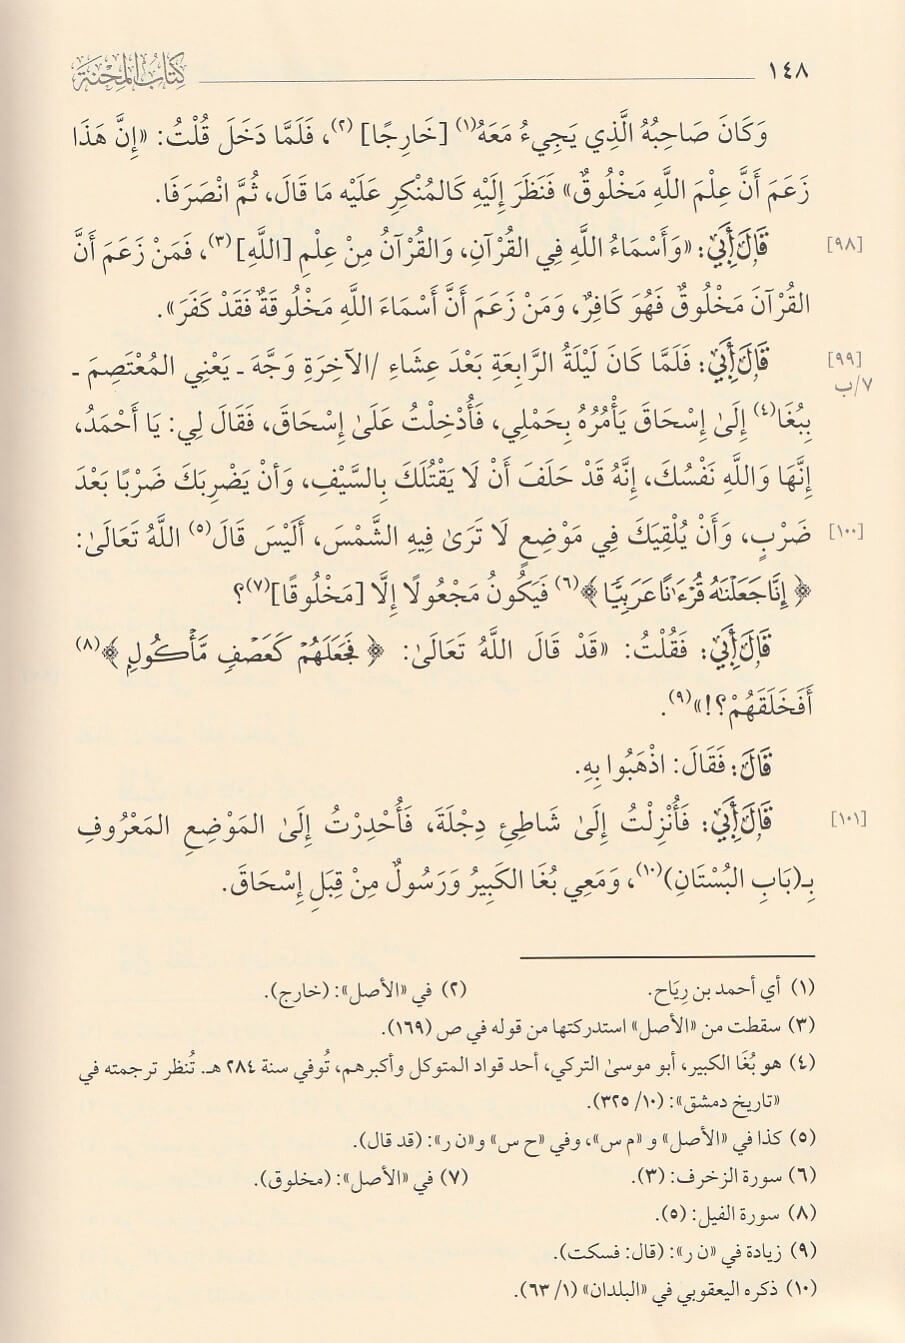 ١٤٨ كِتَابُ المِحْنَة
وَكَانَ صَاحِبُهُ الَّذِي يَجِيءُ مَعَهُ(١) [خَارِجًا] (٢)، فَلَمَّا دَخَلَ قُلْتُ: «إِنَّ هَذَا
زَعَمَ أَنَّ عِلْمَ اللَّهِ مَخْلُوقٌ» فَنَظَرَ إِلَيْهِ كَالمُنْكِرِ عَلَيْه مَا قَالَ، ثُمَّ انْصَرَفَا.
[٩٨] قَالَ أَبِي: «وَأَسْمَاءُ اللَّهِ فِي القُرْآنِ، وَالقُرْآنُ مِنْ عِلْمِ [اللَّهِ] (٣)، فَمَنْ زَعَمَ أَنَّ
القُرْآنَ مَخْلُوقٌ فَهُوَ كَافِرٌ، وَمَنْ زَعَمَ أَنَّ أَسْمَاءَ اللَّهِ مَخْلُوقَةٌ فَقَدْ كَفَرَ».
[٩٩] قَالَ أَبِي: فَلَمَّا كَانَ لَيْلَةُ الرَّابِعَةِ بَعْدَ عِشَاءِ /الآخِرَةِ وَجَّهَ ـ يَعْنِي المُعْتَصِمَ ـ
٧/ب بِبُغَا(٤) إِلَىٰ إِسْحَاقَ يَأْمُرُهُ بِحَمْلِي، فَأُدْخِلْتُ عَلَىٰ إِسْحَاقَ، فَقَالَ لِي: يَا أَحْمَدُ،
إِنَّهَا وَاللَّهِ نَفْسُكَ، إِنَّهُ قَدْ حَلَفَ أَنْ لَا يَقْتُلَكَ بِالسَّيْفِ، وَأنْ يَضْرِبَكَ ضَرْبًا بَعْدَ
[١٠٠] ضَرْبٍ، وَأَنْ يُلْقِيَكَ فِي مَوْضِعٍ لَا تَرَىٰ فِيهِ الشَّمْسَ، أَلَيْسَ قَالَ(٥) اللَّهُ تَعَالَىٰ:
﴿إِنَّا جَعَلْنَٰهُ قُرْءَٰنًا عَرَبِيًّا﴾(٦) فَيَكُونُ مَجْعُولًا إِلَّا [مَخْلُوقًا](٧)؟
قَالَ أَبِي: فَقُلْتُ: «قَدْ قَالَ اللَّهُ تَعَالَىٰ: ﴿فَجَعَلَهُمْ كَعَصْفٍ مَّأْكُولٍ﴾(٨)
أَفَخَلَقَهُمْ؟!»(٩).
قَالَ: فَقَالَ: اذْهَبُوا بِهِ.
[١٠١] قَالَ أَبِي: فَأُنْزِلْتُ إِلَىٰ شَاطِئِ دِجْلَةَ، فَأُحْدِرْتُ إِلَىٰ المَوْضِعِ المَعْرُوفِ
بِـ(بَابِ البُسْتَانِ)(١٠)، وَمَعِي بُغَا الكَبِيرُ وَرَسُولٌ مِنْ قِبَلِ إِسْحَاقَ.
(١) أي أحمد بن رِيَاح. (٢) في «الأصل»: (خارج).
(٣) سقطت من «الأصل» استدركتها من قوله في ص (١٦٩).
(٤) هو بُغَا الكبير، أبو موسىٰ التركي، أحد قواد المتوكل وأكبرهم، تُوفي سنة ٢٨٤ هـ. تُنظر ترجمته في
«تاريخ دمشق»: (١٠/ ٣٢٥).
(٥) كذا في «الأصل» و «م س»، وفي «ح س» و«ن ر»: (قد قال).
(٦) سورة الزخرف: (٣). (٧) في «الأصل»: (مخلوق).
(٨) سورة الفيل: (٥).
(٩) زيادة في «ن ر»: (قال: فسكت).
(١٠) ذكره اليعقوبي في «البلدان» (١/ ٦٣).